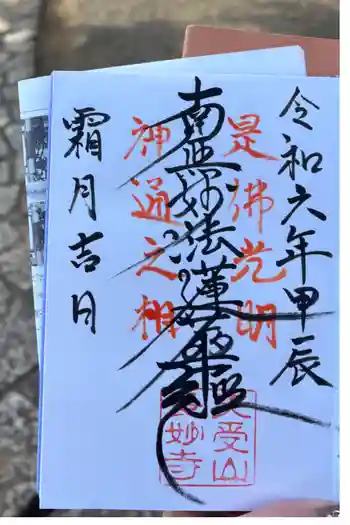 令和六年甲辰
是佛光明
南無妙法蓮華経
神通之相
霜月吉日
受山
妙寺